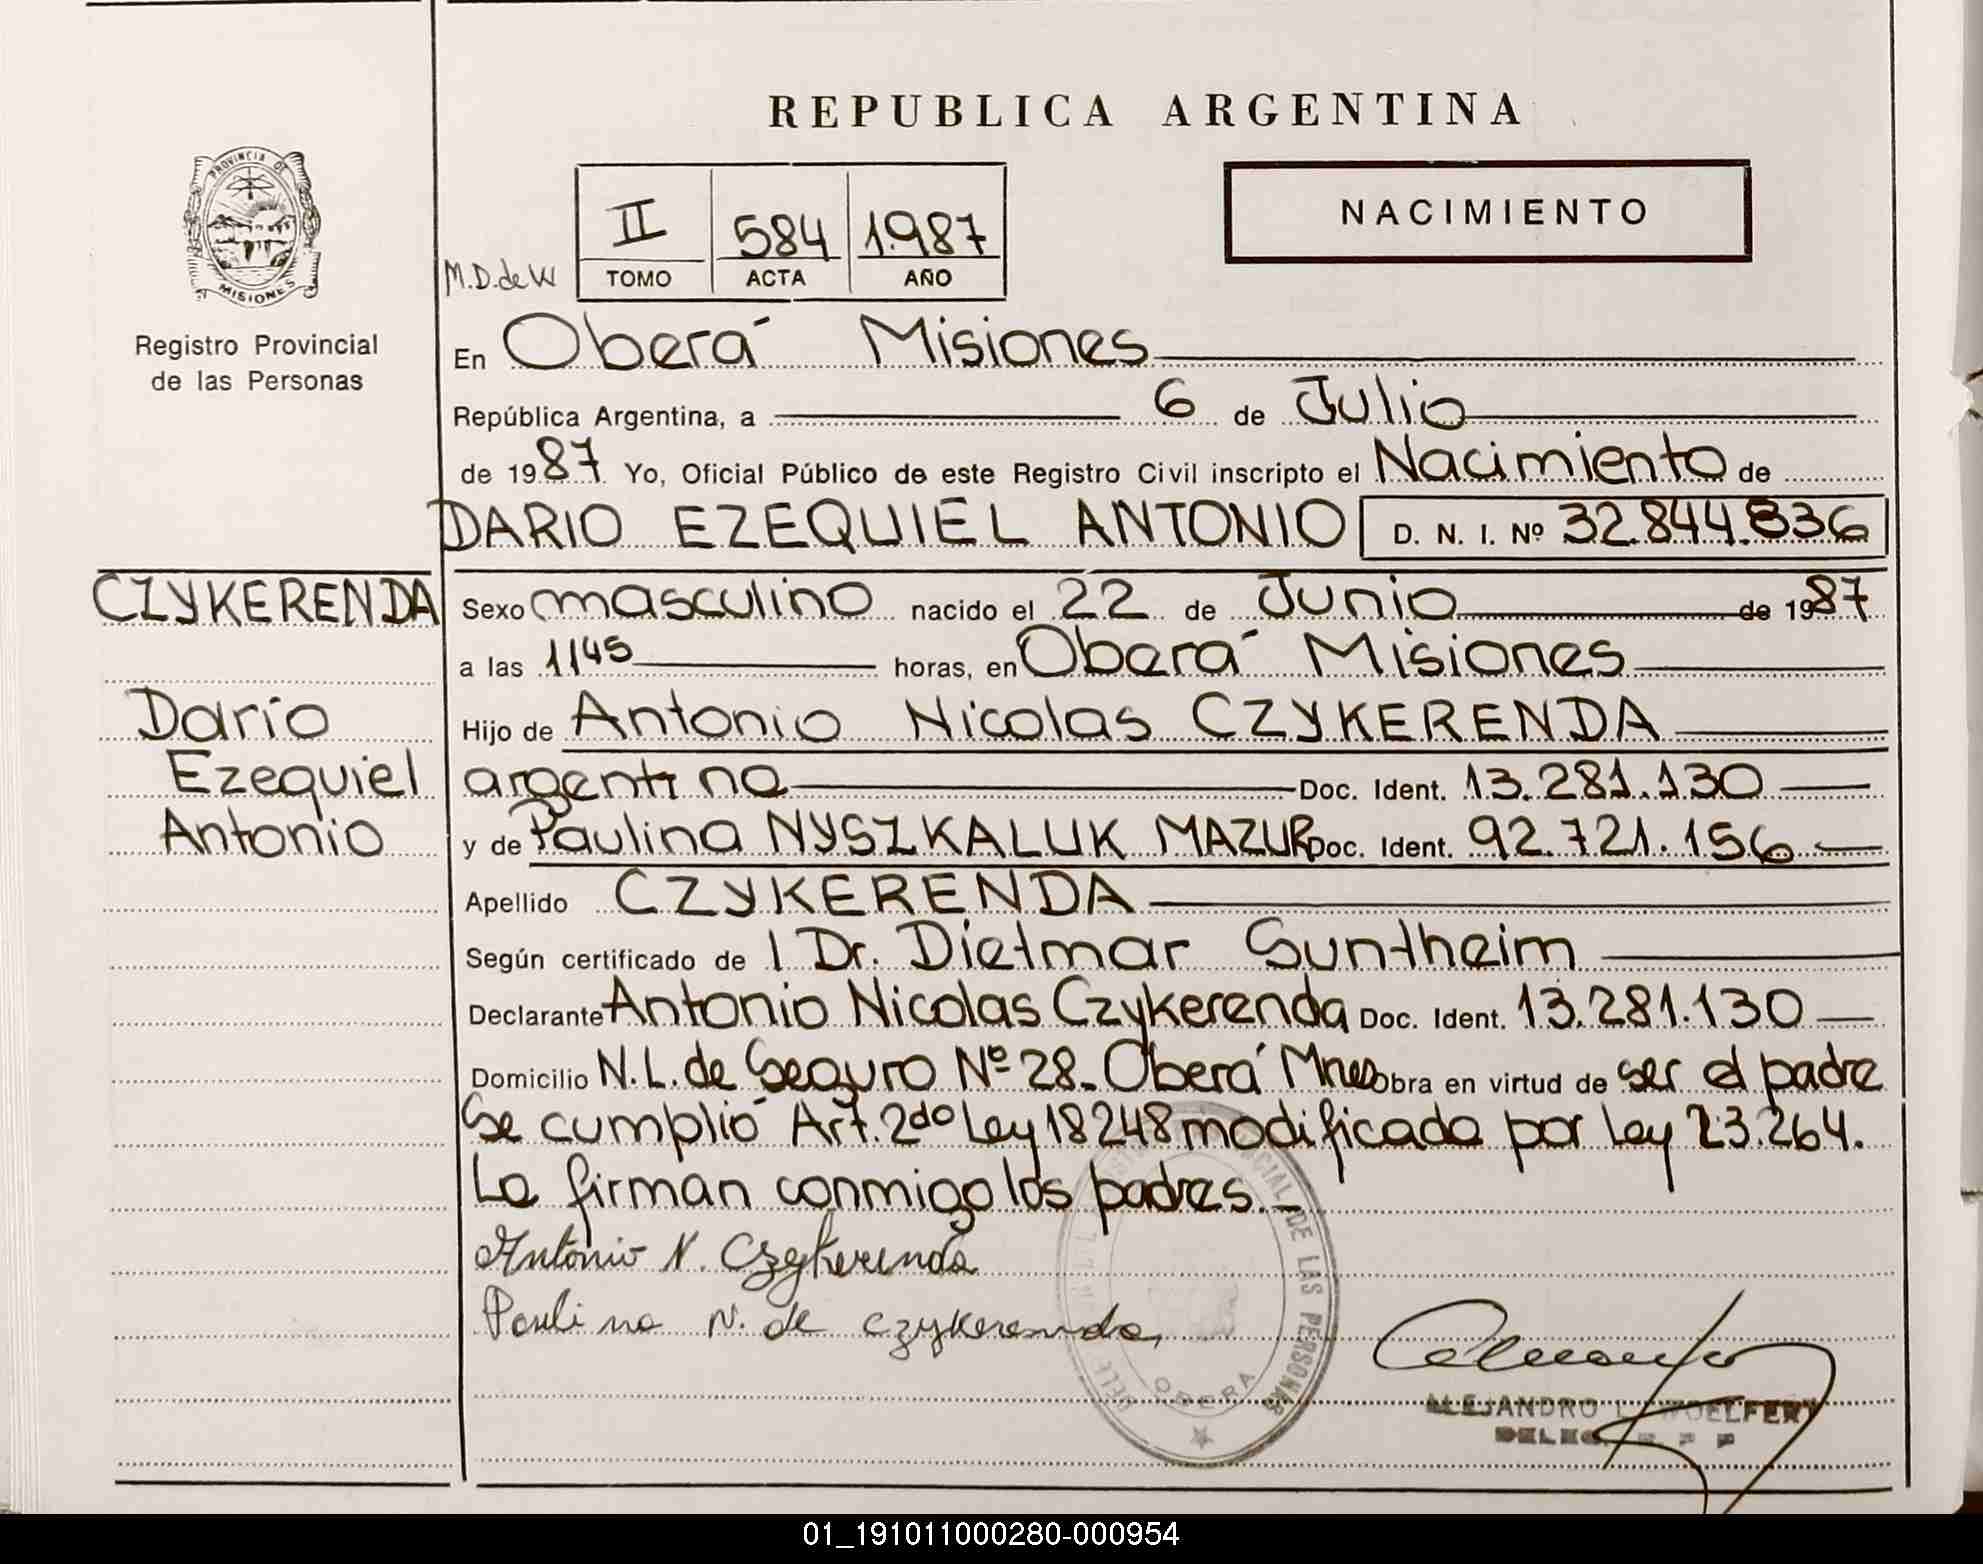 REPUBLICA ARGENTINA
PROVINCIA DE
MISIONES
Registro Provincial
de las Personas
NACIMIENTO
II 584 1.987
M.D. de W
TOMO ACTA AÑO
En Oberá Misiones
República Argentina, a 6 de Julio
de 1987 Yo, Oficial Público de este Registro Civil inscripto el Nacimiento de
DARIO EZEQUIEL ANTONIO D. N. I. Nº 32.844.836
CZYKERENDA
Dario
Ezequiel
Antonio
Sexo masculino nacido el 22 de Junio de 1987
a las 1145 horas, en Oberá Misiones
Hijo de Antonio Nicolas CZYKERENDA
argentino Doc. Ident. 13.281.130
y de Paulina NYSZKALUK MAZUR Doc. Ident. 92.721.156
Apellido CZYKERENDA
Según certificado de l Dr. Dietmar Suntheim
Declarante Antonio Nicolas Czykerenda Doc. Ident. 13.281.130
Domicilio N.L. de Seguro Nº 28- Oberá Mnes Obra en virtud de ser el padre
Se cumplió Art. 2do Ley 18248 modificada por Ley 23.264.
La firman conmigo los padres.-
Antonio N. Czykerenda
Paulina N. de Czykerenda
DE LAS PERSONAS
OBERA
ALEJANDRO L. WOELFERT
01_191011000280-000954